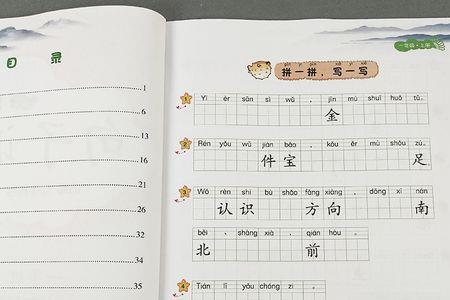 目 录
1
6
13
16
21
26
32
34
35
一年级·上册
拼一拼，写一写
1
Yī èr sān sì wǔ ， jīn mù shuǐ huǒ tǔ。
金
2
Rén yǒu wǔ jiàn bǎo ， kǒu ěr mù shǒu zú。
件 宝 足
3
Wǒ rèn shi bù shǎo fāng xiàng， dōng xī nán
认 识 方 向 南
běi 、 shàng xià 、 qián hòu 。
北 前
4
Tián lǐ yǒu chóng zi 。